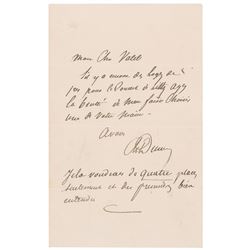 Mon Cher Valet
S'il y a encore des loges de
1er pour le Concert de Litz ayez
la bonté de m'en faire choisir
une de votre main.
Avous
Je la voudrais de quatre places
seulement et des premières bien
entendu